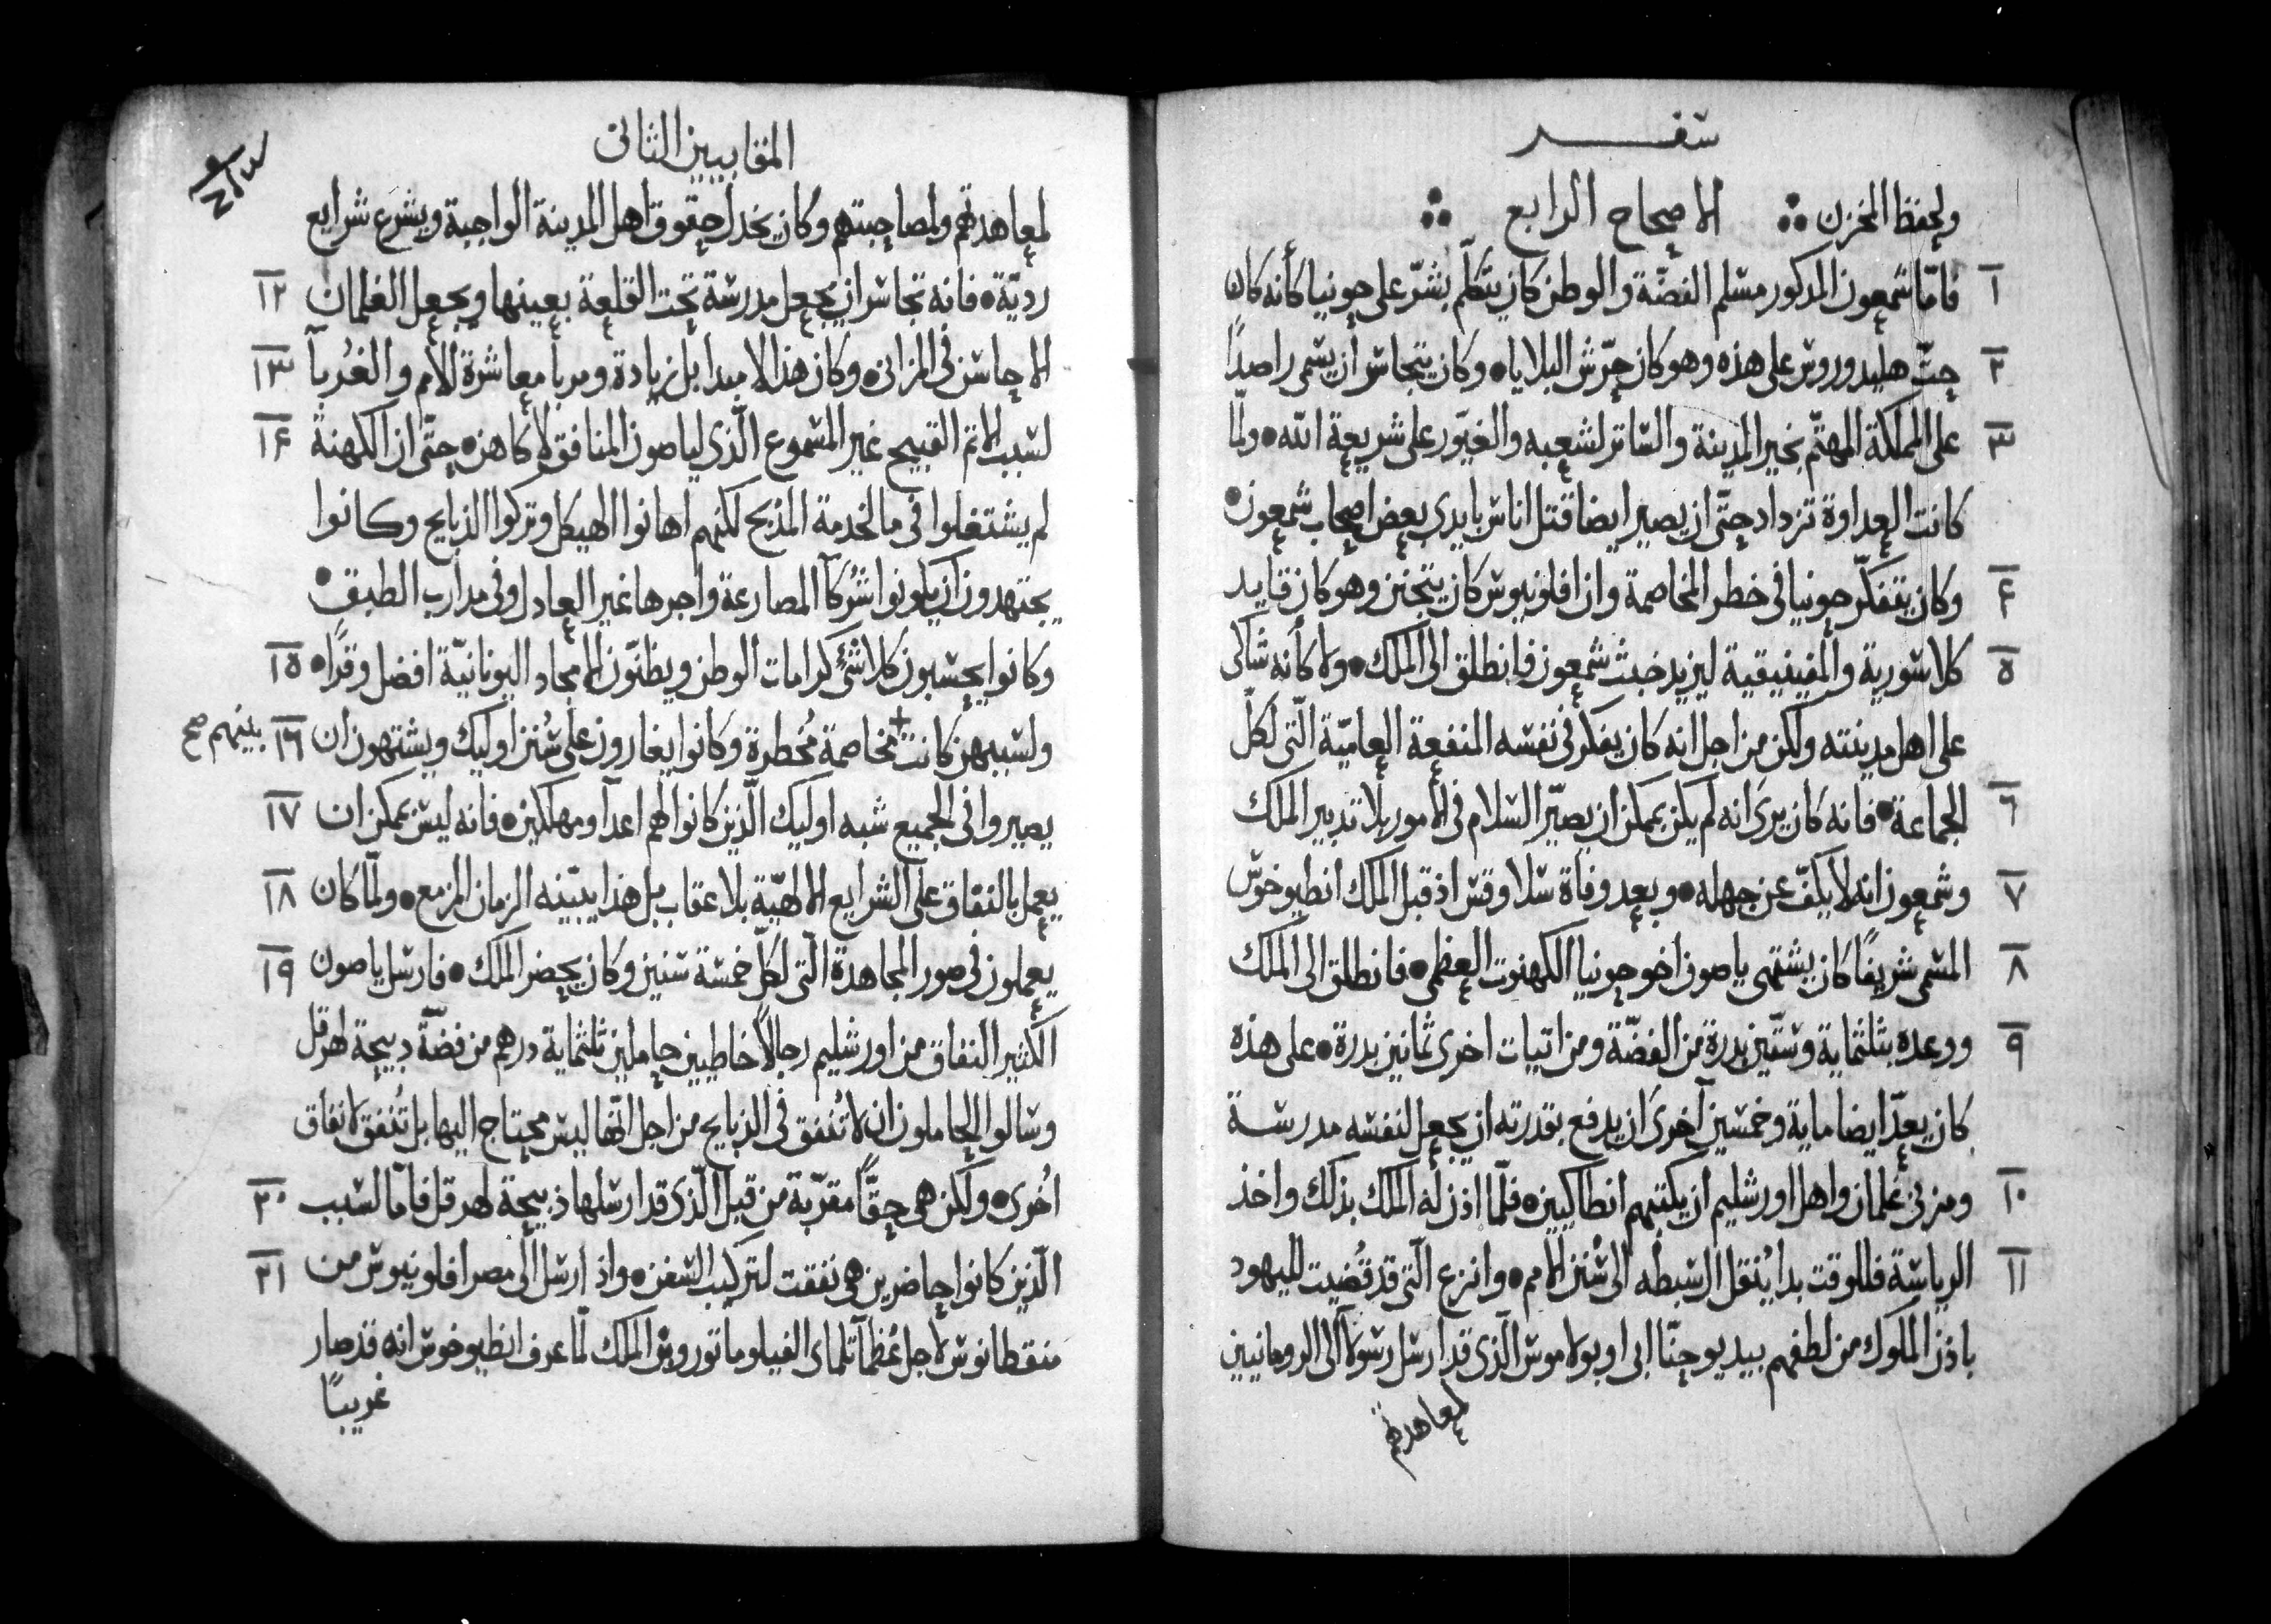 سفر
ولحفظ المخزن ∴ الاصحاح الرابع ∴
١ فامّا شمعون المذكور مسلم الفضّة والوطن كان يتكلّم بشرّ على حونيا كأنه كان
٢ حثّ هليدوروس على هذه وهو كان حرّش البلايا ۰ وكان يتجاسر أن يسمى راصدًا
٣ على المملكة المهتمّ بخير المدينة والساتر لشعبه والغيّور على شريعة الله ۰ ولمّا
كانت العداوة تزداد حتّى ان يصير ايضا قتل اناس بايدى بعض اصحاب شمعون ۰
۴ وكان يتفكّر حونيا فى خطر المخاصمة وان افلونيوس كان يتجنن وهو كان قايد
٥ كلاسورية والفينيقية ليزيد خبث شمعون فانطلق الى الملك ۰ ولا كأنه شاكى
على اهل مدينته ولكن من اجل انه كان يفكر فى نفسه المنفعة العاميّة الّتى لكلّ
٦ الجماعة ۰ فانه كان يرى انه لم يكن يمكن ان يصيّر السلام فى الأمور بلا تدبير الملك
٧ وشمعون انه لا يكفّ عن جهله ۰ وبعد وفاة سلاوقس اذ قبل الملك انطيوخوس
٨ المسمى شريفًا كان يشتهى ياصون اخو حونيا الكهنوت العظمى ۰ فانطلق الى الملك
٩ ووعده بثلثماية وستّين بدرة من الفضّة ومن اتيات اخرى ثمانين بدرة ۰ على هذه
كان يعدّ ايضا ماية وخمسين آخرى ان يدفع بقدرته ان يجعل لنفسه مدرسة
١٠ ومزبى غلمان واهل اورشليم أن يكتبهم انطاكيين ۰ فلمّا اذن له الملك بذلك واخذ
١١ الرياسة فللوقت بدا يُنقل ال سبطه الى سُنن الامم ۰ وانزع الّتى قد قُضيت لليهود
باذن الملوك من لطفهم بيد يوحنّا ابى اوبولاموس الّذى قد ارسل رسولًا الى الرومانيين
لمعاهدتهم
المقابيين الثانى
لمعاهدتهم ولمصاحبتهم وكان يخدل حقوق اهل المدينة الواجبة ويشرع شرايع
١٢ رديّة ۰ فانه تجاسر ان يجعل مدرسة تحت القلعة بعينها ويجعل الغلمان
١٣ الاحاسن فى المزانى ۰ وكان هذا لا مبدا بل زيادة ومربا معاشرة الأمم والغُربآ
١۴ لسبب الاثم القبيح غير المسموع الّذى لياصون المنافق لا كاهن ۰ حتّى ان الكهنة
لم يشتغلوا فى ما لخدمة المذبح لكنهم اهانوا الهيكل وتركوا الذبايح وكانوا
يجتهدون ان يكونوا شُركآ المصارعة واجرها غير العادل وفى مدارب الطبق ۰
١٥ وكانوا يحسبون كلا شئ كرامات الوطن ويظنّون الامجاد اليونانيّة افضل وقرًا ۰
١٦ ولسببهن كانت + مخاصمة مُخطرة وكانوا يغارون على سُنن اوليك ويشتهون ان
بينهم صح
١٧ يصيروا فى الجميع شبه اوليك الّذين كانوا لهم اعدآ ومهلكين ۰ فانه ليس يمكن ان
١٨ يعمل بالنفاق على الشرايع الالهيّة بلا عقاب بل هذا يبيّنه الزمان المزمع ۰ ولمّا كان
١٩ يعملون فى صور المجاهدة الّتى لكلّ خمسة سنين وكان يحضر الملك ۰ فارسل ياصون
الكثير النفاق من اورشليم رجالًا خاطيين حاملين ثلثماية درهم من فضّة دبيحة لهرقل
وسالوا الحاملون ان لا تُنفق فى الذبايح من اجل انّها ليس محتاج اليها بل تُنفق لانفاق
٢٠ اُخرى ۰ ولكن هى حقًّا مقرّبة من قبل الّذى قد ارسلها ذبيحة لهرقل فامّا لسبب
٢١ الّذين كانوا حاضرين هى نفقت لتركيب السفن ۰ واذ ارسل الى مصر افلونيوس من
منقطانوس لاجل عُظمآ تلماى الفيلوماتوروس الملك لمّا عرف انطيوخوس انه قد صار
غريبًا